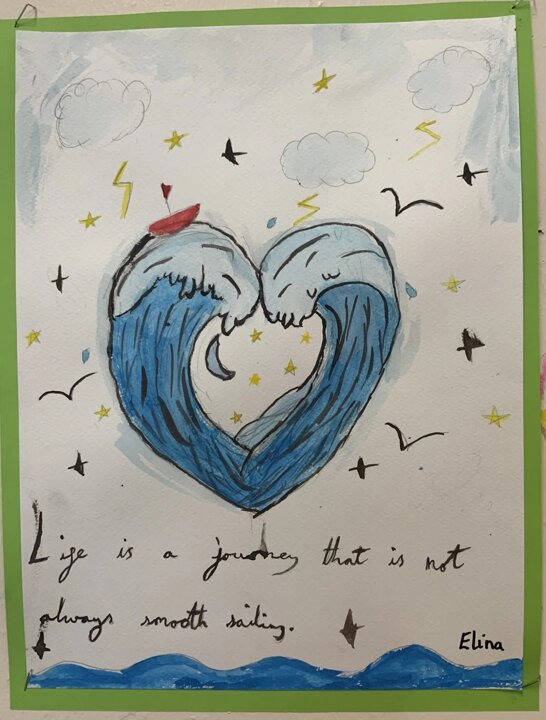 Life is a journey that is not
always smooth sailing.
Elina